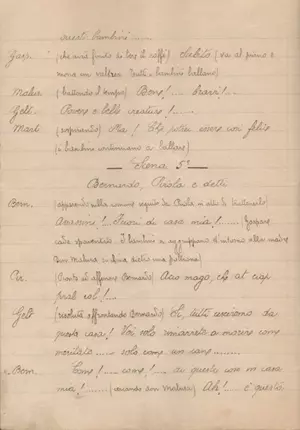 questi bambini ......
Gasp. (che avrà finito di bere il caffè) Subito (va al piano e
suona un valtzer. Tutti i bambini ballano)
Malva (battendo il tempo) Bene!.... Bravi!....
Gelt. Povere e belle creature!......
Mart. (sospirando) Ma! Che potea essere così felice
(i bambini continuano a ballare)
Scena 5ª
Bernardo, Pirola e detti
Bern. (apparendo sulla comune seguito da Pirola in atto di
Assassini!... Fuori di casa mia!....... (Gaspare
cade spaventato. I bambini si aggruppano d'intorno alla madre
Don Malva si
Pir. (tenta di afferrare Bernardo) Ado mago, che at ciap
Gelt (risoluta affrontando Bernardo) Sì, tutti usciremo da
questa casa! Voi solo rimarrete a morire come
meritate..... solo come un cane.......
Bern. Cane!.... cane!..... di queste cose in casa
mia!........ (vedendo don Malva) Ah! è questo